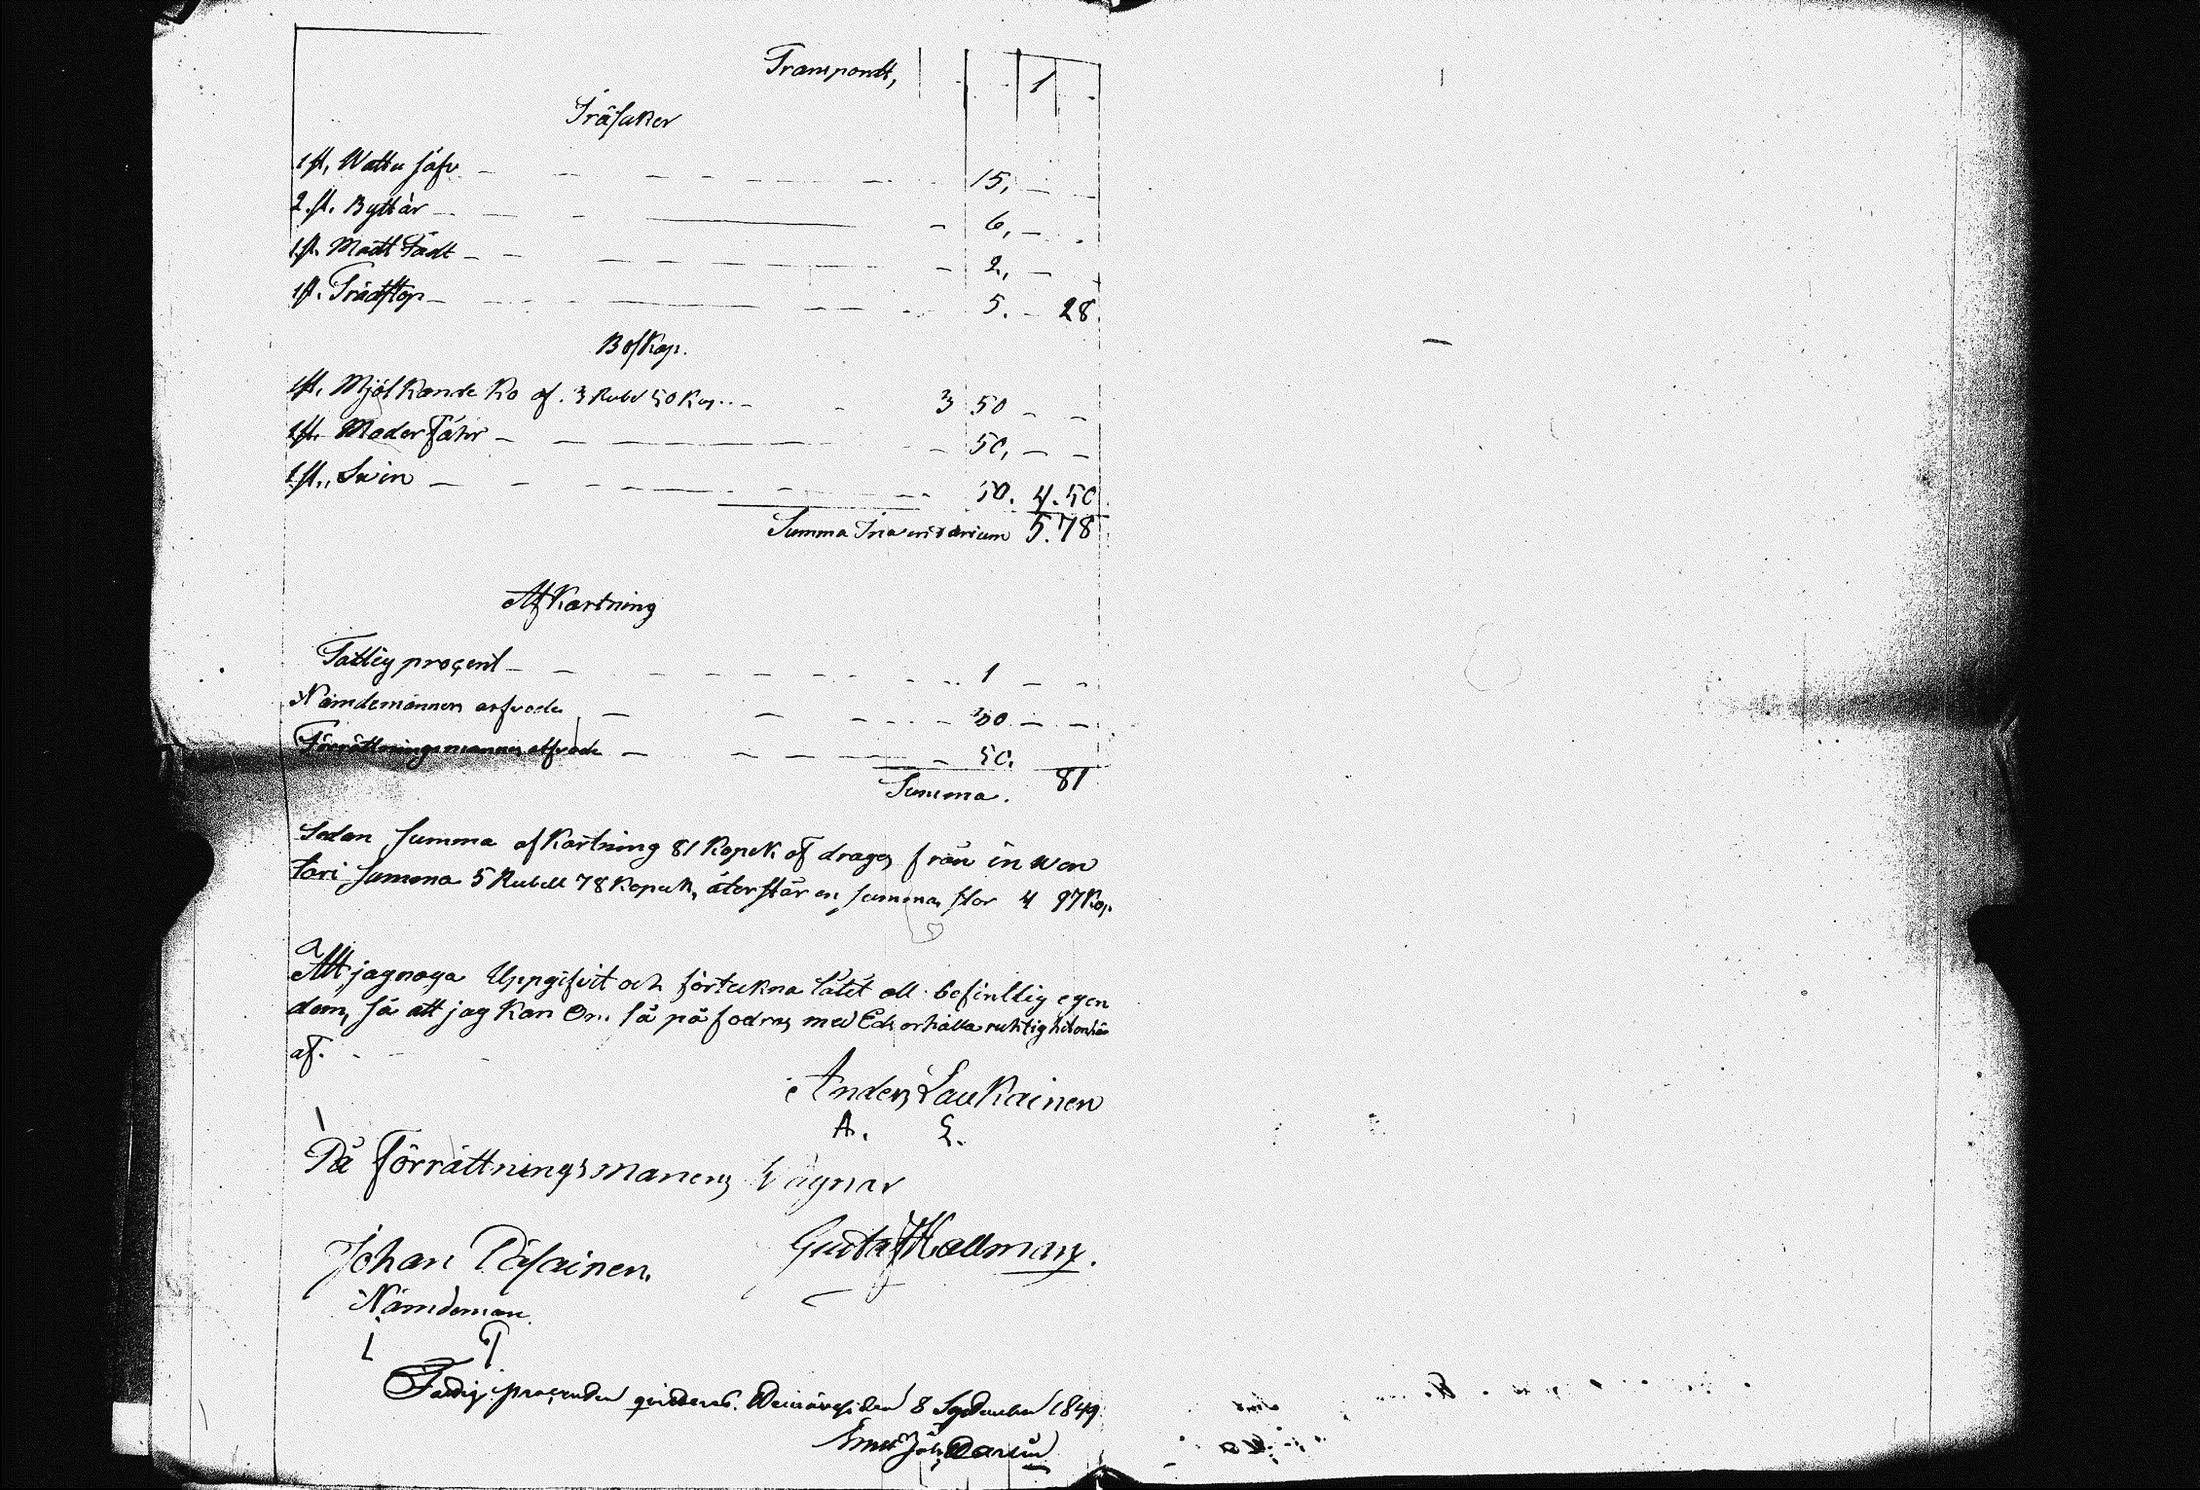 Transpordt, 1
Träsaker
1 st, Wattu såfv 15,
2. st. Byttår 6,
1 st. Madt Fadt 2,
1 st. Trädstop 5. 28
Boskap.
1 st. Mjölkande Ko af. 3 Rubel 50 Kop. 3 50
1 st. Moder Fåhr 50,
1 st. Swin 50. 4.50
Summa Inawentarium 5.78
Afkortning
Fattig procent 1
Nämdemannen arfvode 30
Förrättningsmannens arfvode 50.
Summa. 81
Sedan Summa afkortning 81 Kopek af drages från in wen
tari summa 5 Rubell 78 Kopek, återstår en summa stor 4 97 Kop.
Att jag noga Uppgifvit och förtekna låtit all befintlig egen
dom, så att jag kan Om så på fodras med Ed erhålla
af.
Anders Laukainen
A. L.
På Förrättningsmanens Wägnar
Johan Påsainen. Gustaf Hallman.
Nämdeman
I P
Fattig procenten qvitteras. den 8 September 1849